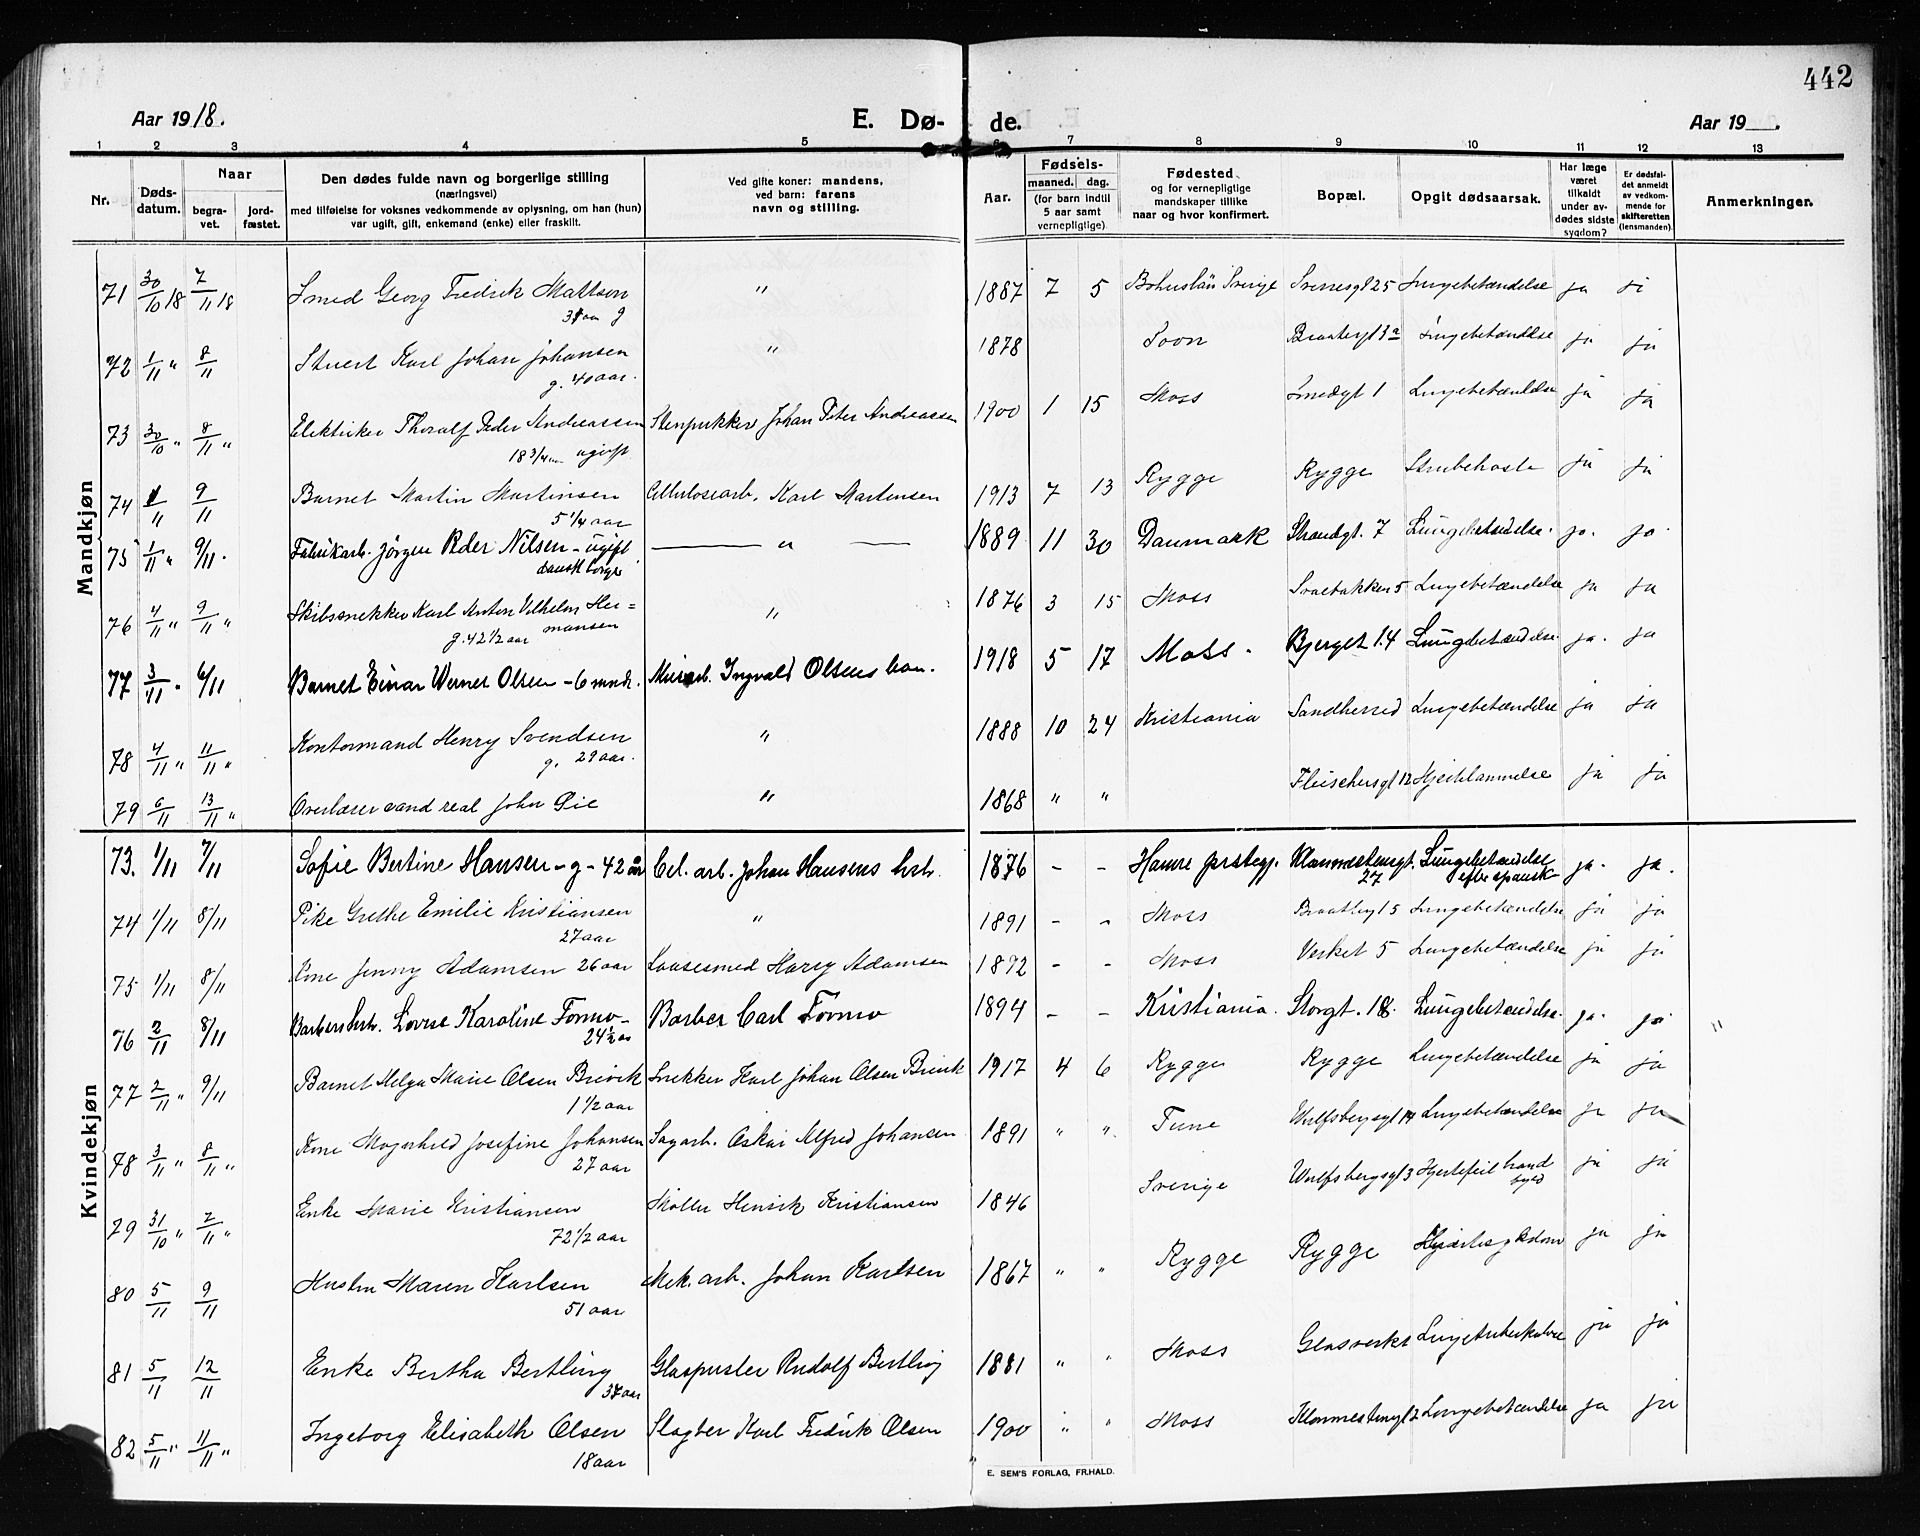 442
Aar 1918. E. Dø- de. Aar 19 .
1 2 3 4 5 6 7 8 9 10 11 12 13
Nr. Dødsdatum. Naar begravet. jordfæstet. Den dødes fulde navn og borgerlige stilling (næringsvei) med tilføielse for voksnes vedkommende av oplysning, om han (hun) var ugift, gift, enkemand (enke) eller fraskilt. Ved gifte koner: mandens, ved barn: farens navn og stilling. Aar. Fødsels- maaned. dag. (for barn indtil 5 aar samt vernepligtige) Fødested og for vernepligtige mandskaper tillike naar og hvor konfirmert. Bopæl. Opgit dødsaarsak. Har læge været tilkaldt under avdødes sidste sygdom? Er dødsfaldet anmeldt av vedkommende for skifteretten (lensmanden). Anmerkninger.
Mandkjøn
71 30/10 18 7/11 18 Smed Georg Fredrik Mattson g " 1887 7 5 Bohuslän Sverige 25 Lungebetændelse ja
72 1/11 " 8/11 Karl Johan Johansen g. 40 aar. " 1878 Lungebetændelse ja ja
73 30/10 " 8/11 " Elektriker Thoralf Peder Andreassen 18 3/4 aar ugift. Stenpukker Johan Peter Andreassen 1900 1 15 Moss Smedgt 1 Lungebetændelse ja ja
74 1/11 9/11 Barnet Martin Martinsen 5 1/4 aar Cellulosearb. Karl Martensen 1913 7 13 Rygge Rygge Strubehoste ja ja
75 1/11 " 9/11. Fabrikarb. Jørgen Peder Nilsen - ugift dansk borger — " — 1889 11 30 Danmark Strandgt. 7 Lungebetændelse. ja. ja.
76 4/11 " 9/11 " Skibssnekker Karl Anton Vilhelm Hermansen g. 42 1/2 aar " 1876 3 15 Moss 5 Lungebetændelse ja ja
77 3/11 " 6/11 Barnet Einar Werner Olsen - 6 mndr. Ingvald Olsens 1918 5 17 Moss. Bjerget 14 Lungebetændelse. ja. ja
78 4/11 " 11/11 " Kontormand Henry Svendsen g. 29 aar. " 1888 10 24 Kristiania Sandherred Lungebetændelse ja ja
79 6/11 13/11 " Overlærer cand real John " 1868 " " Fleischersgt 12 ja ja
Kvindekjøn
73. 1/11 7/11 Sofie Bertine Hansen - g - 42 år Cel. arb. Johan Hansens hstr. 1876 - - prstegj. 27 Lungebetændelse efter spansk ja. ja.
74 1/11 8/11 Pike Grethe Emilie Kristiansen 27 aar " 1891 - - Moss 5 Lungebetændelse ja ja
75 1/11 8/11 Kone Jenny Adamsen 26 aar Laasesmed Harry Adamsen 1892 - - Moss Verket 5 Lungebetændelse ja ja
76 2/11 8/11 Barbershstr. Lovise Karoline Formo - 24 1/2 år Barber Carl Formo 1894 - - Kristiania. Storgt. 18. Lungebetændelse. ja. ja "
77 2/11 " 9/11 Barnet Helga Marie Olsen Brevik 1 1/2 aar Snekker Karl Johan Olsen Brevik 1917 4 6 Rygge Rygge Lungebetændelse ja ja
78 3/11 " 8/11 " Kone Magnhild Josefine Johansen 27 aar Sagarb. Oskar Alfred Johansen 1891 " " Tune Wulfsbergsgt 14 Lungebetændelse ja ja
79 31/10 " 2/11 " Enke Marie Kristiansen 72 1/2 aar Møller Henrik Kristiansen 1846 Sverige Wulfsbergsgt 3 Hjertefeil ja ja
80 5/11 9/11 Hustru Maren Karlsen 51 aar Mek. arb. Johan Karlsen 1867 " " Rygge Rygge Hjertesykdom ja ja
81 5/11 12/11 Enke Bertha Bertling 37 aar Glaspuster Rudolf Bertling 1881 " " Moss Glasverket Lungetuberkulose ja ja
82 5/11 " 11/11 " Ingeborg Elisabeth Olsen 18 aar Slagter Karl Fredrik Olsen 1900 " " Moss 2 Lungebetændelse ja ja
E. SEM'S FORLAG, FR.HALD.